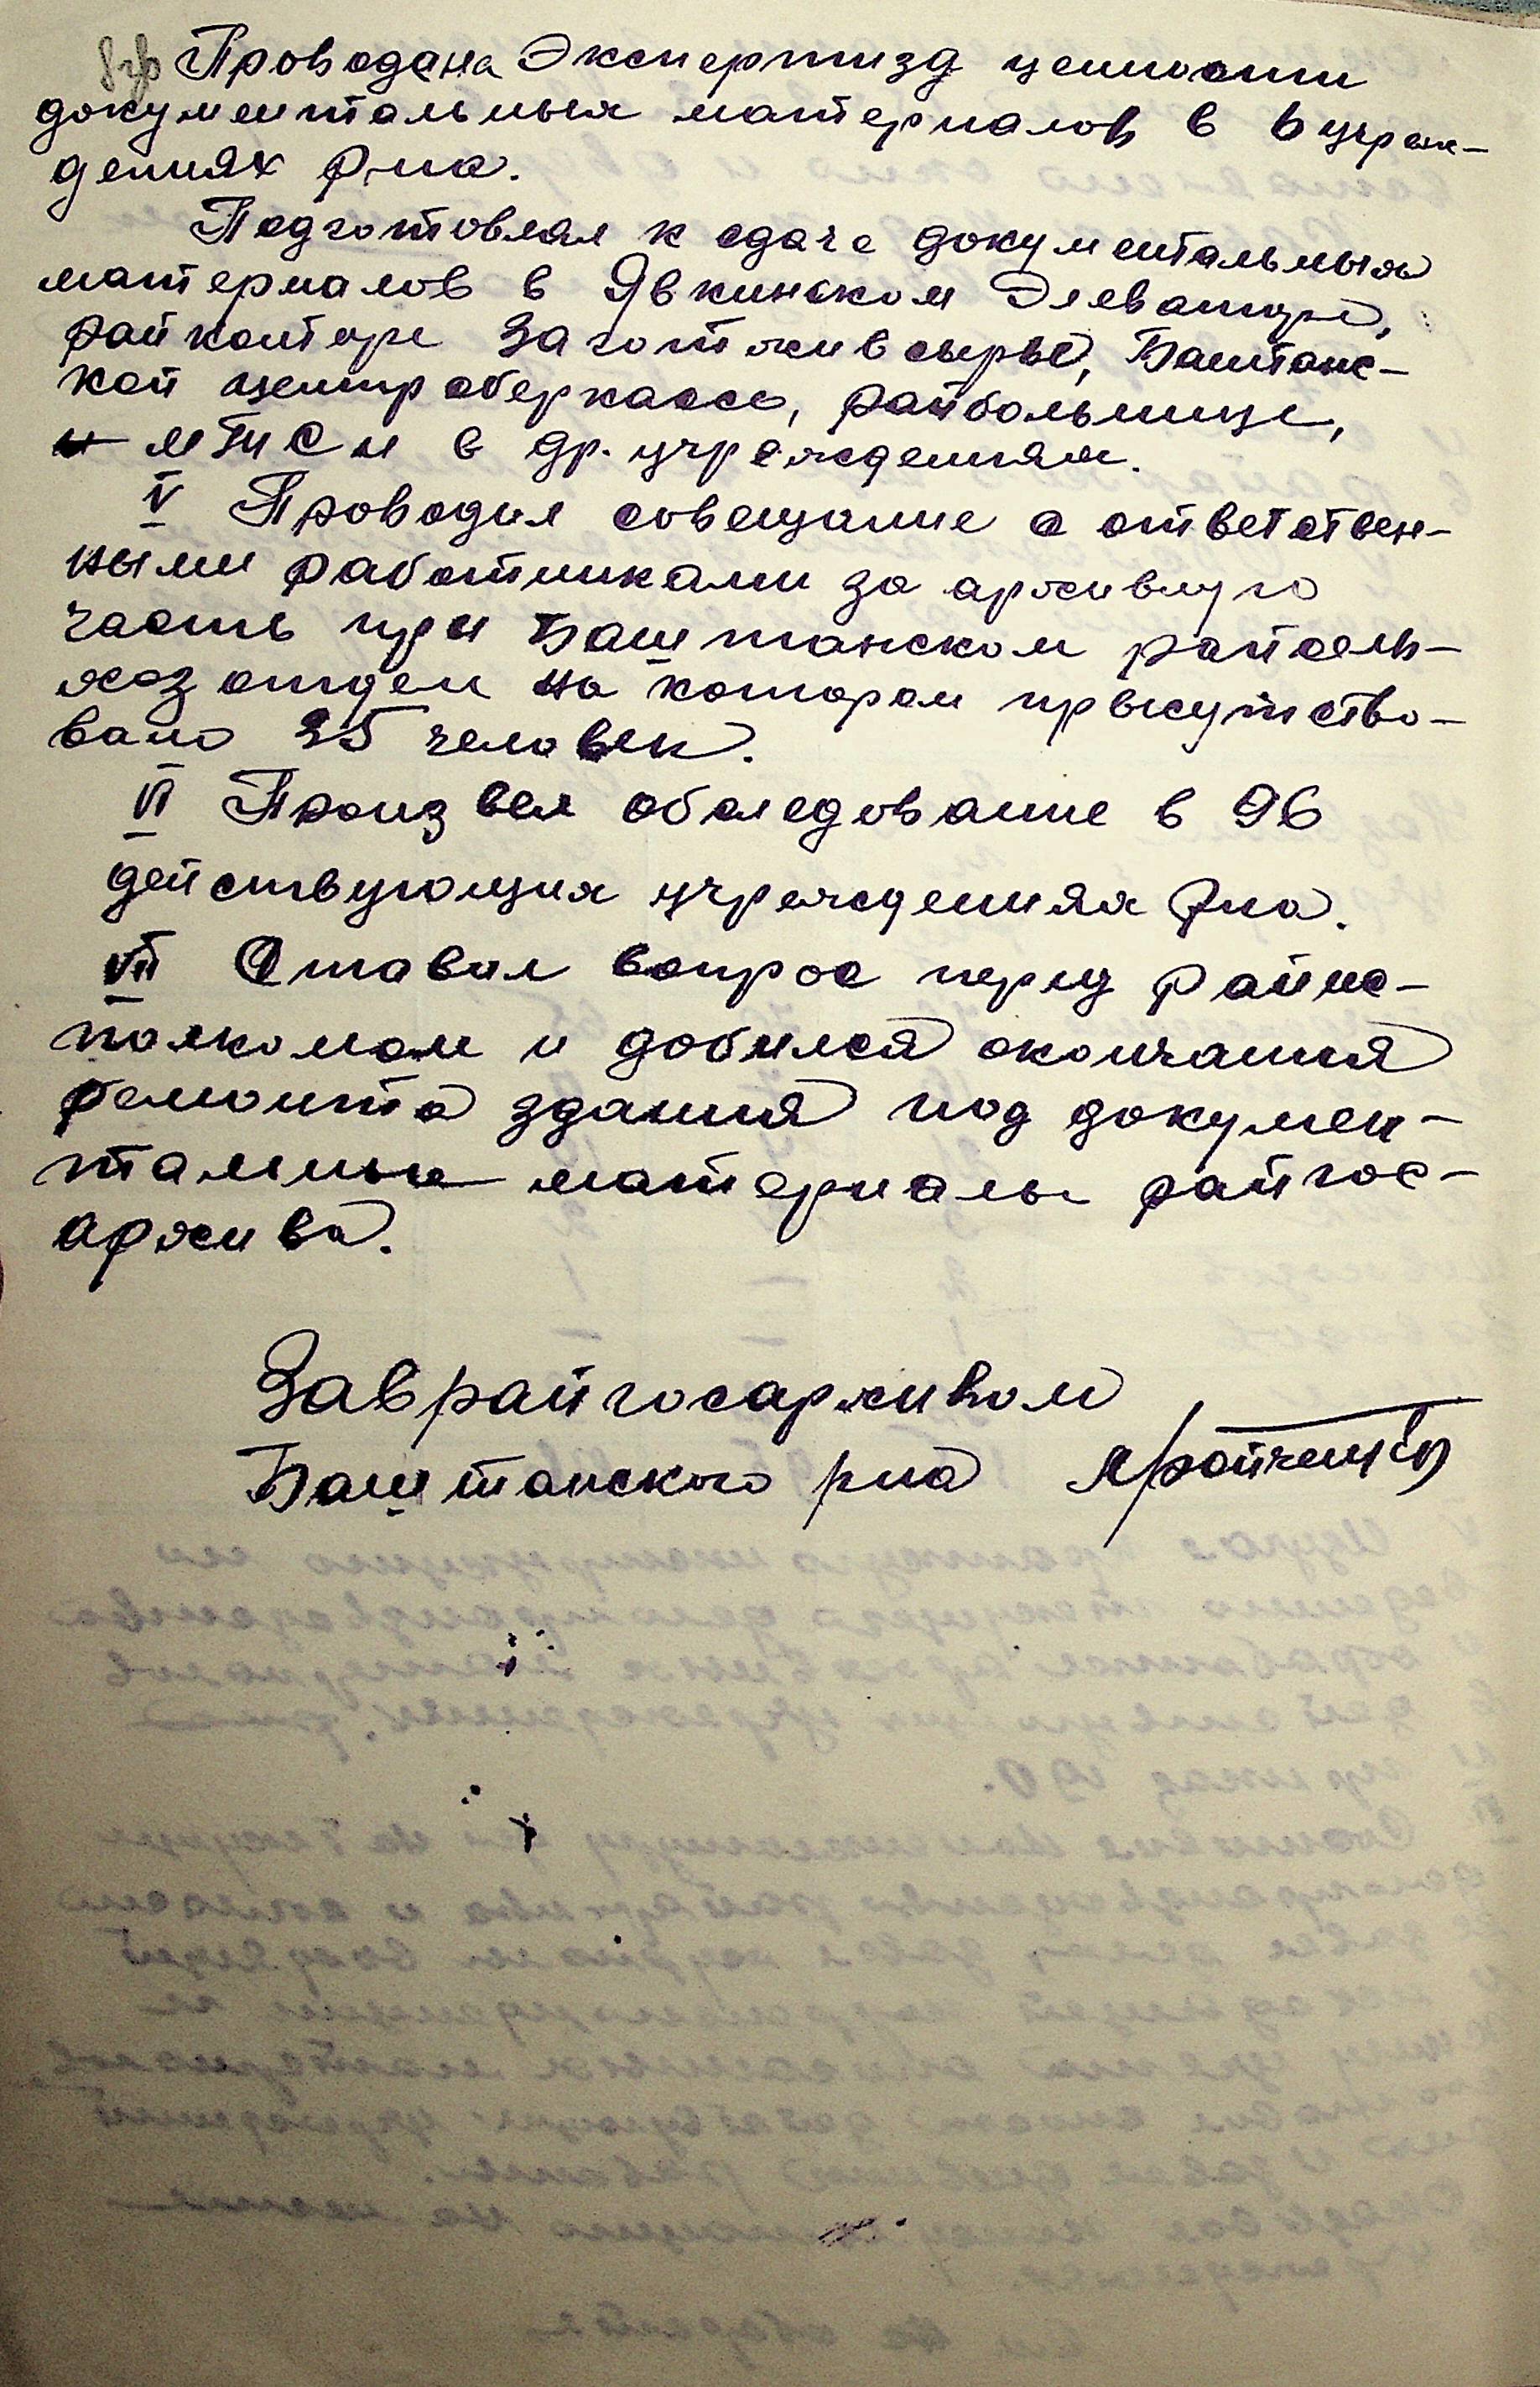 Проводена Экспертизд ценности
документальных материалов в 6 учреж-
дениях р-на.
Подготовлял к сдаче документальных
материалов в Явкинском Элеваторе,
райконторе Заготживсырьё, Баштанс-
кой центросберкассе, райбольнице,
и МТИСи в др. учреждениях.
V Проводил совещание с ответствен-
ными работниками за архивную
часть при Баштанском райсель-
хоз отделе на котором присутство-
вало 35 человек.
VI Произвел обследование в 96
действующих учреждениях р-на.
VII Ставил вопрос перед Райис-
полкомом и добился окончания
ремонта здания под докумен-
тальные материалы райгос-
архива.
Заврайгосархивом
Баштанского р-на